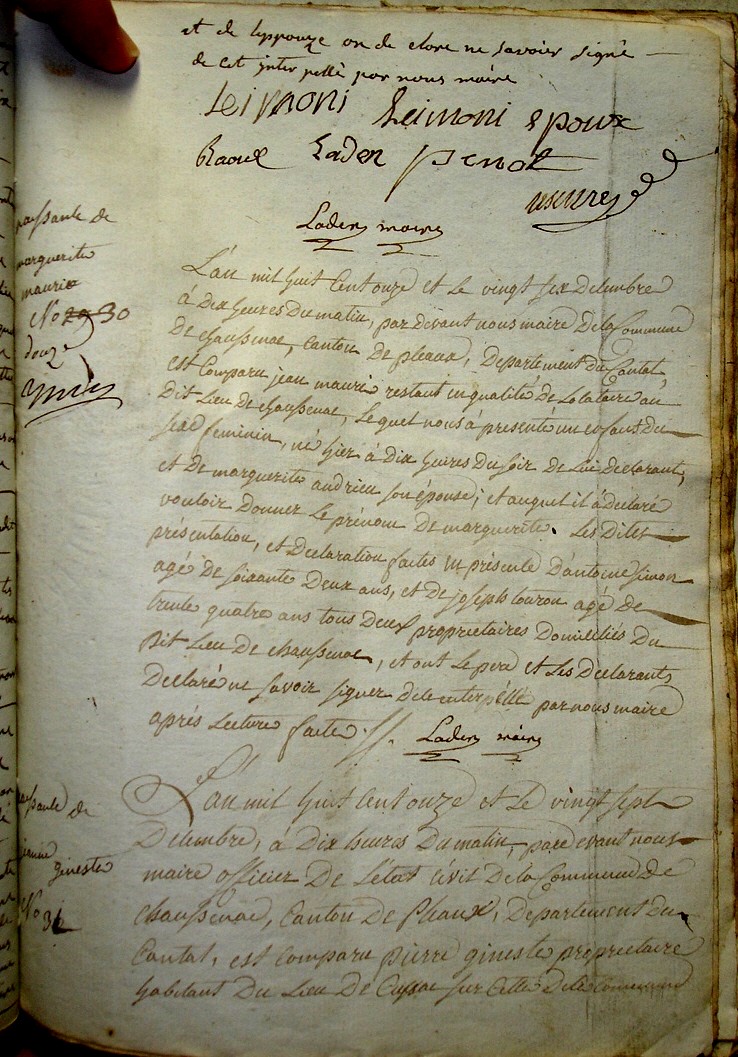 et de lepouze on de clore ne savoir signé
de cet inter pellé par nous maire
Leimoni Leimoni epoux
Raoul Lader
Lader maire
naissance de
marguerite
maurie
No 29 30
douze
L'an mil huit Cent onze et le vingt six decembre
à Dix heures Du matin, par devant nous maire De la Commune
De chaussenac, Canton De pleaux, Departement du Cantal,
est Comparu jean maurie restant en qualité de Locataire au
Dit Lieu de chaussenac, Lequel nous à presenté un enfant Du
sexe feminin, né hier à Dix heures Du soir De Lui declarant,
et De marguerite audrieu son épouse; et auquel il à declaré
vouloir Donner Le prénom De marguerite. Les Dites
présentation, et Declaration faites en présence D'antoine simon
agé De soixante Deux ans, et De joseph touron agé de
trente quatre ans tous Deux proprietaires Domiciliés Du
Dit Lieu De chaussenac, et ont Le pere et Les Declarants
Declaré ne savoir signer de ce interpéllé par nous maire
aprés Lecture faite.
Lader maire
naissance de
jeanne
gineste
No 31
L'an mil huit Cent onze et Le vingt sept
Decembre, à Dix heures Du matin, par devant nous
maire officier De L'etat Civil De la Commune De
chaussenac, Canton De Pleaux, Departement Du
Cantal, est Comparu pierre gineste proprietaire
habitant Du Lieu De Cussac sur Cette Dite Commune